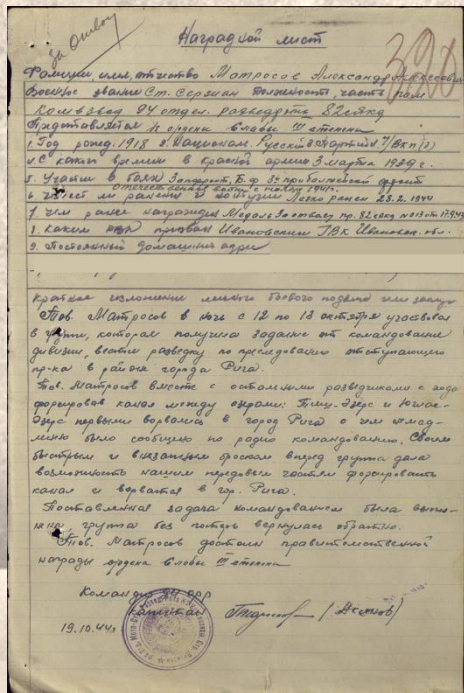 за Отвагу
Наградной лист
320
Фамилия, имя, отчество Матросов Александр Алексеевич
Военное звание Ст. Сержант должность, часть пом
Комвзвод 94 отдел. разведроты 82 сякд
Представляется к ордену Славы III степени
1. Год рожд. 1918 2. Национал. Русский 3. Партийн. ч/ВКП(б)
4. С какого времени в красной армии 3 марта 1939 г.
5. Участие в боях Запфронт, Б.Ф 3й прибалтийский фронт
отечественная война с июля 1941 г.
6. имеет ли ранения и контузии Легко ранен 28.2.1944
7. чем ранее награжден Медаль За отвагу пр. 82 сякд №013 от 17.9.43
8. каким РВК призван Ивановским ГВК Ивановск. обл.
9. Постоянный домашний адрес
Краткое изложение личного боевого подвига или заслуг
Тов. Матросов в ночь с 12 по 13 октября участвовал
в группе, которая получила задание от командования
дивизии, вести разведку по преследованию отступающего
пр-ка в районе города Рига.
Тов. Матросов вместе с остальными разведчиками с хода
форсировав канал между озерами: Киш-Эзерс и Югла-
Эзерс первыми ворвались в город Рига о чем немед-
ленно было сообщено по радио командованию. Своим
быстрым и внезапным броском вперед группа дала
возможность нашим передовым частям форсировать
канал и ворваться в гор. Рига.
Поставленная задача командованием была выпол-
нена, группа без потерь вернулась обратно.
Тов. Матросов достоин правительственной
награды ордена Славы III степени
Командир 94 орр
капитан
19.10.44г.